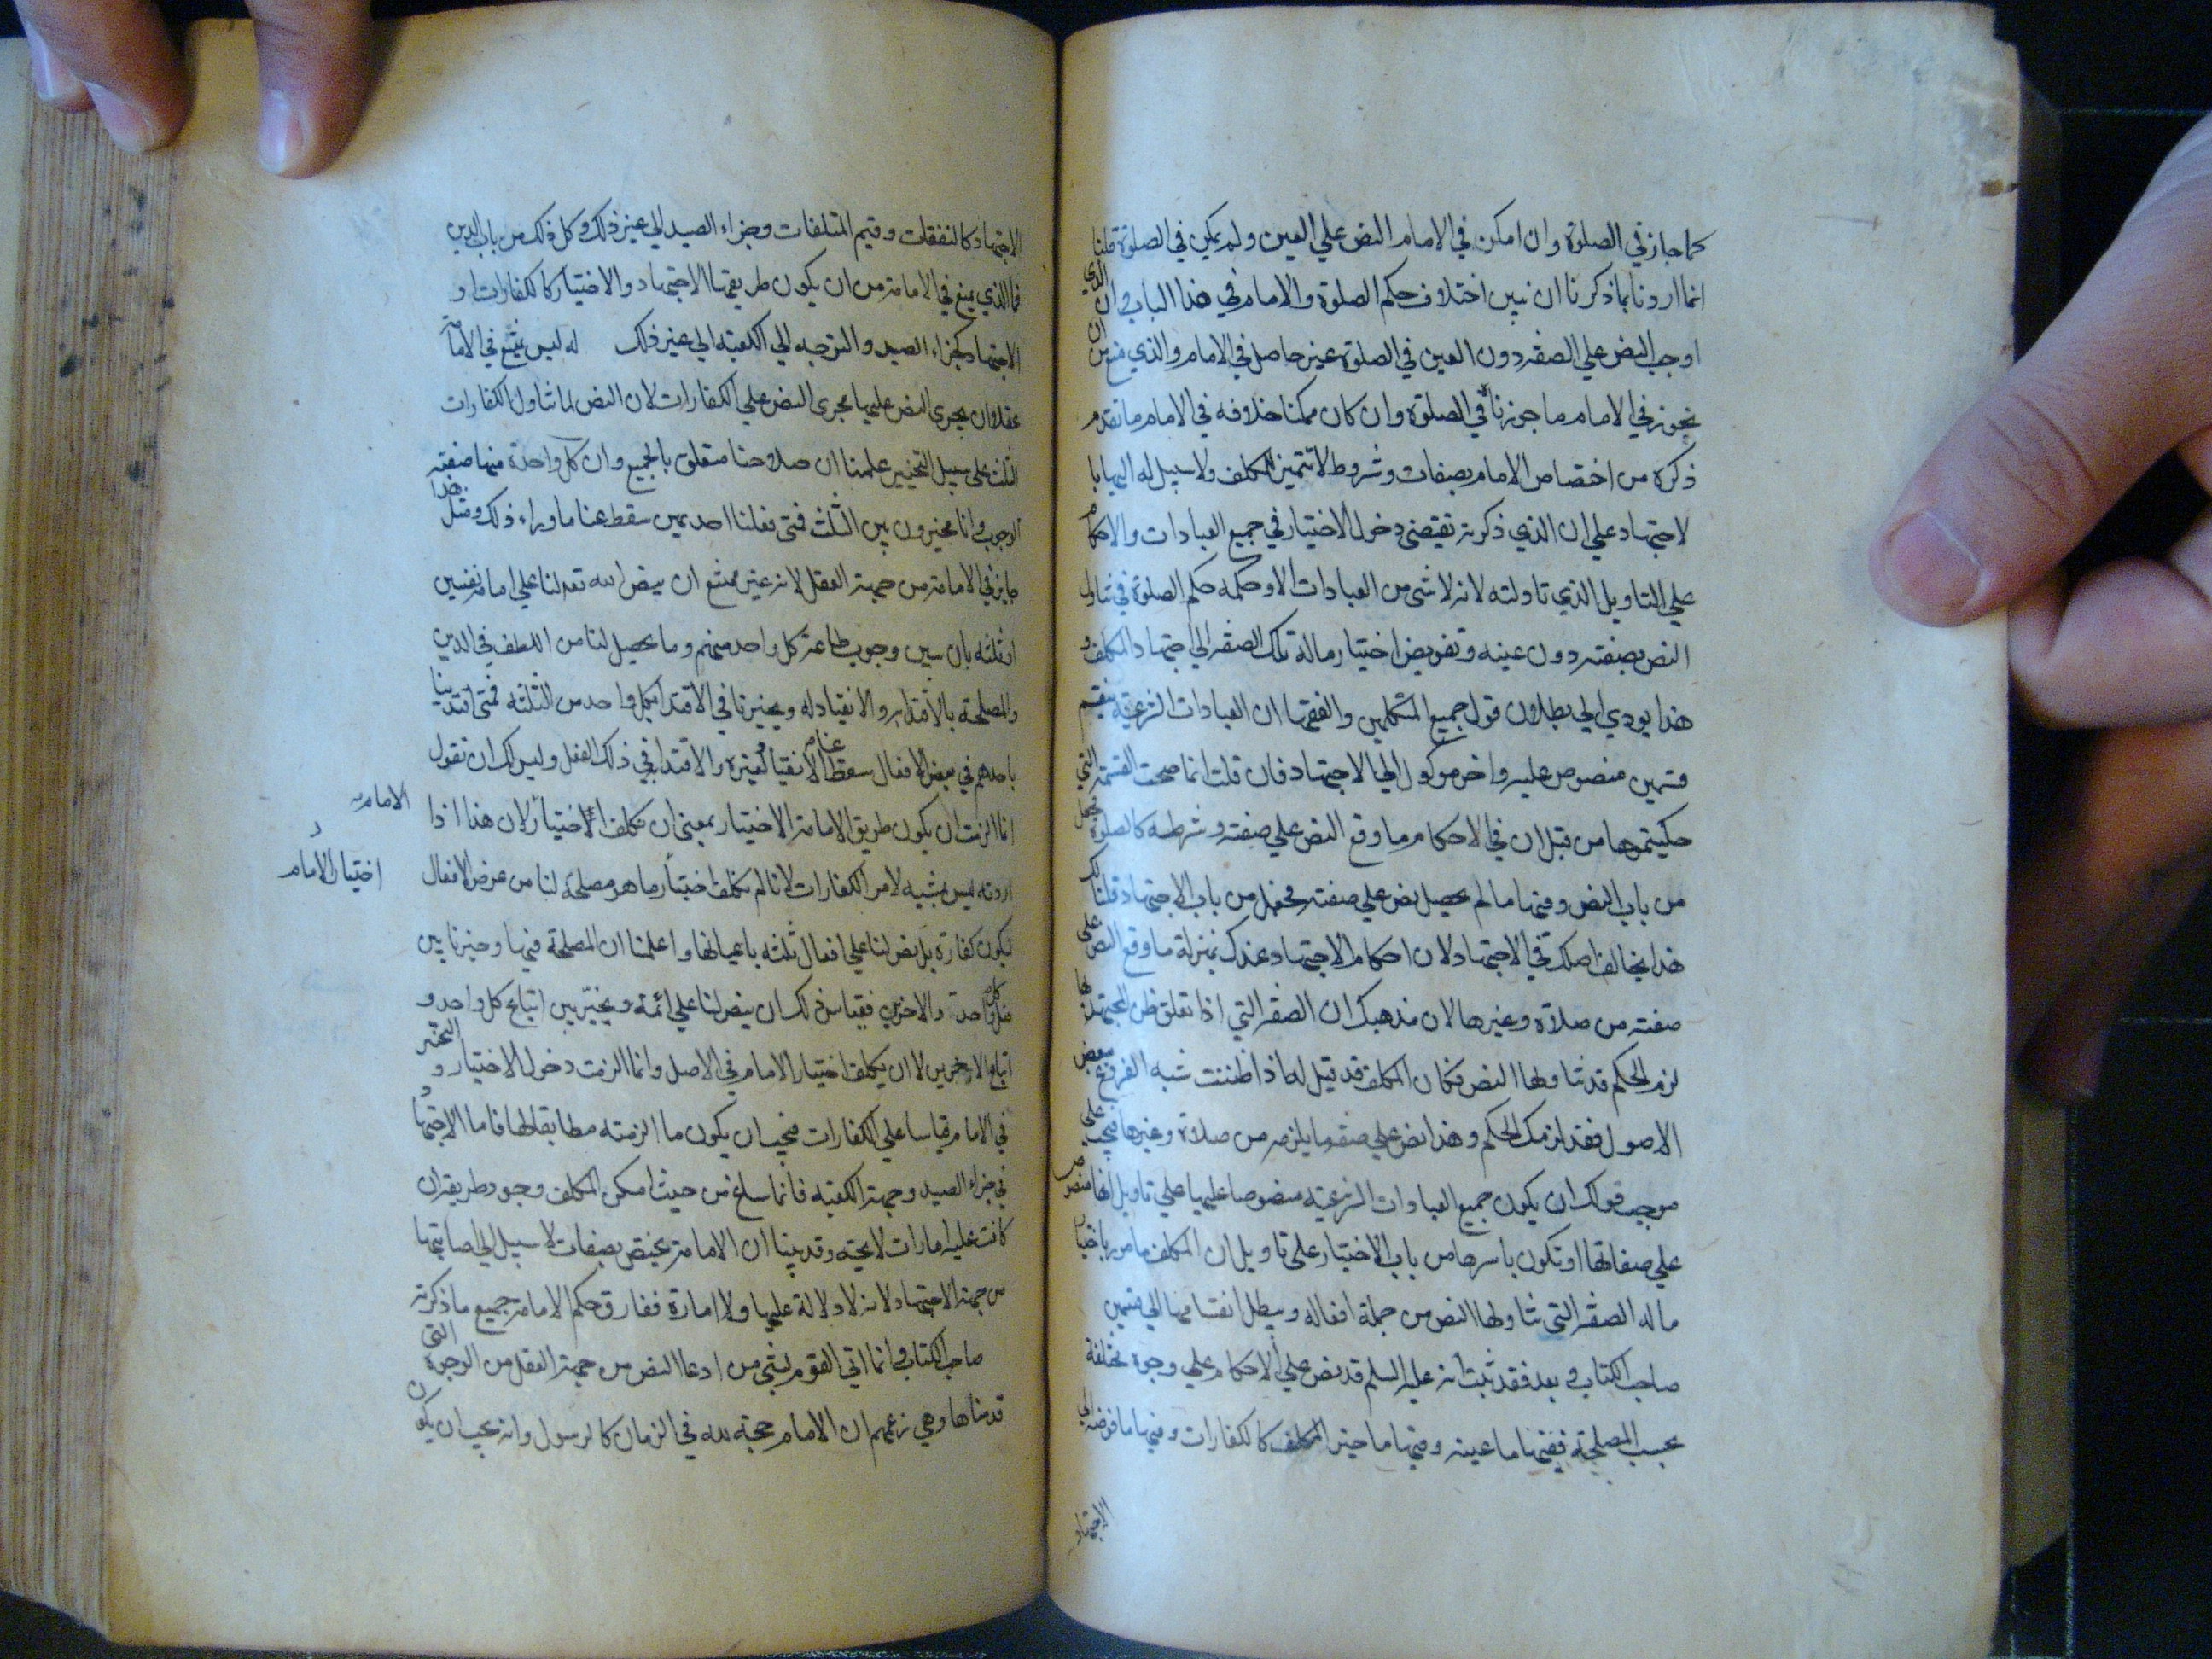 كما جاز في الصلوة وان امكن في الامام النص علي العين ولم يمكن في الصلوة قلنا
انما اردنا بما ذكرنا ان نبين اختلاف حكم الصلوة والامام في هذا الباب وان الذي
اوجب النص علي الصفه دون العين في الصلوة غير حاصل في الامام والذي منع من ان
نجوز في الامام ما جوزناه في الصلوة وان كان ممكنا خلافه في الامام ما تقدم
ذكره من اختصاص الامام بصفات وشروط لا تتميز للمكلف ولا سبيل له اليها با
لاجتهاد علي ان الذي ذكرته تقتضي دخول الاختيار في جميع العبادات والاحكام
علي التاويل الذي تاولته لانه لا شي من العبادات الا وحكمه حكم الصلوة في تناول
النص بصفته دون عينه وتفويض اختيار ماله تلك الصفه الي اجتهاد المكلف و
هذا يودي الي بطلان قول جميع المتكلمين والفقها ان العبادات الشرعية ينقسم
قسمين منصوص عليه واخر موكول الي الاجتهاد فان قلت انما صحت القسمة التي
حكيتموها من قبل ان في الاحكام ما وقع النص علي صفته وشرطه كالصلوة فجعل
من باب النص وفيها ما لم يحصل نص علي صفته فجعل من باب الاجتهاد قلنا لك
هذا يخالف اصلك في الاجتهاد لان احكام الاجتهاد عندك بمنزلة ما وقع النص علي
صفته من صلاة وغيرها لان مذهبك ان الصفه التي اذا تعلق ظن المجتهد بها
لزم الحكم قد تناولها النص فكان المكلف قد قيل له اذا ظننت شبه الفرع ببعض
الاصول فقد لزمك الحكم وهذا نص علي صفه ما يلزمه من صلاة وغيرها فيجب علي
موجب قولك ان يكون جميع العبادات الشرعية منصوصا عليها علي تاويل انها منصوص
علي صفاتها او تكون باسرها من باب الاختيار علي تاويل ان المكلف مامور باختيار
ماله الصفه التي تناولها النص من جملة افعاله ويبطل انقسامها الي قسمين
صاحب الكتاب وبعد فقد ثبت انه عليه السلم قد نص علي الاحكام علي وجوه مختلفة
بحسب المصلحة ففيها ما عينه وفيها ما خير المكلف كالكفارات وفيها ما فوضه الي
الاجتهاد
الاجتهاد كالنفقات وقيم المتلفات وجزاء الصيد الي غير ذلك وكل ذلك من باب الدين
فما الذي يمنع في الامامة من ان يكون طريقها الاجتهاد والاختيار كالكفارات او
الاجتهاد كجزاء الصيد والتوجه الي الكعبة الي غير ذلك له ليس يمتنع في الامامة
عقلا ان يجري النص عليها مجري النص علي الكفارات لان النص لما تناول الكفارات
الثلث علي سبيل التخيير علمنا ان صلاحنا متعلق بالجميع وان كل واحدة منها صفته
الوجوب وانا مخيرون بين الثلث فمتي فعلنا احديهن سقط عنا ما وراء ذلك ومثل هذا
جايز في الامامة من جهة العقل لانه غير ممتنع ان ينص الله تع لنا علي امامة نفسين
او ثلثه بان يبين وجوب طاعة كل واحد منهم وما يحصل لنا من اللطف في الدين
والمصلحة بالاقتدا به والانقياد له ويخيرنا في الاقتدا بكل واحد من الثلثه فمتي اقتدينا
باحدهم في بعض الافعال سقط عنا الانقياد لغيره والاقتدا به في ذلك الفعل وليس لك ان تقول
انما الزمت ان يكون طريق الامامة الاختيار بمعني ان نكلف اختيار الامام لان هذا اذا
اردته ليس بشبيه لامر الكفارات لانا لم نكلف اختيار ما هو مصلحة لنا من عرض الافعال
ليكون كفارة بل نص لنا علي افعال ثلثه باعيانها واعلمنا ان المصلحة فيها وخيرنا بين
كل واحدة والاخري فقياس ذلك ان ينص لنا علي ائمة ويخير بين اتباع كل واحد و
اتباع الاخرين لا ان يكلف اختيار الامام في الاصل وانما الزمت دخول الاختيار والتخير
في الامام قياسا علي الكفارات فيجب ان يكون ما الزمته مطابقا لها فاما الاجتهاد
في جزاء الصيد وجهة الكعبة فانما ساغ من حيث امكن المكلف وجود طريقه ان
كانت عليه امارات لايحة وقد بينا ان الامامة يختص بصفات لا سبيل الي اصابتها
من جهة الاجتهاد لانه لا دلالة عليها ولا امارة ففارق حكم الامامة جميع ما ذكرته
صاحب الكتاب وانما اتي القوم لشي من ادعا النص من جهة العقل من الوجوه التي
قدمناها وهي زعمهم ان الامام حجة لله في الزمان كالرسول وانه يجب ان يكون
الامامه
اختيار الامام